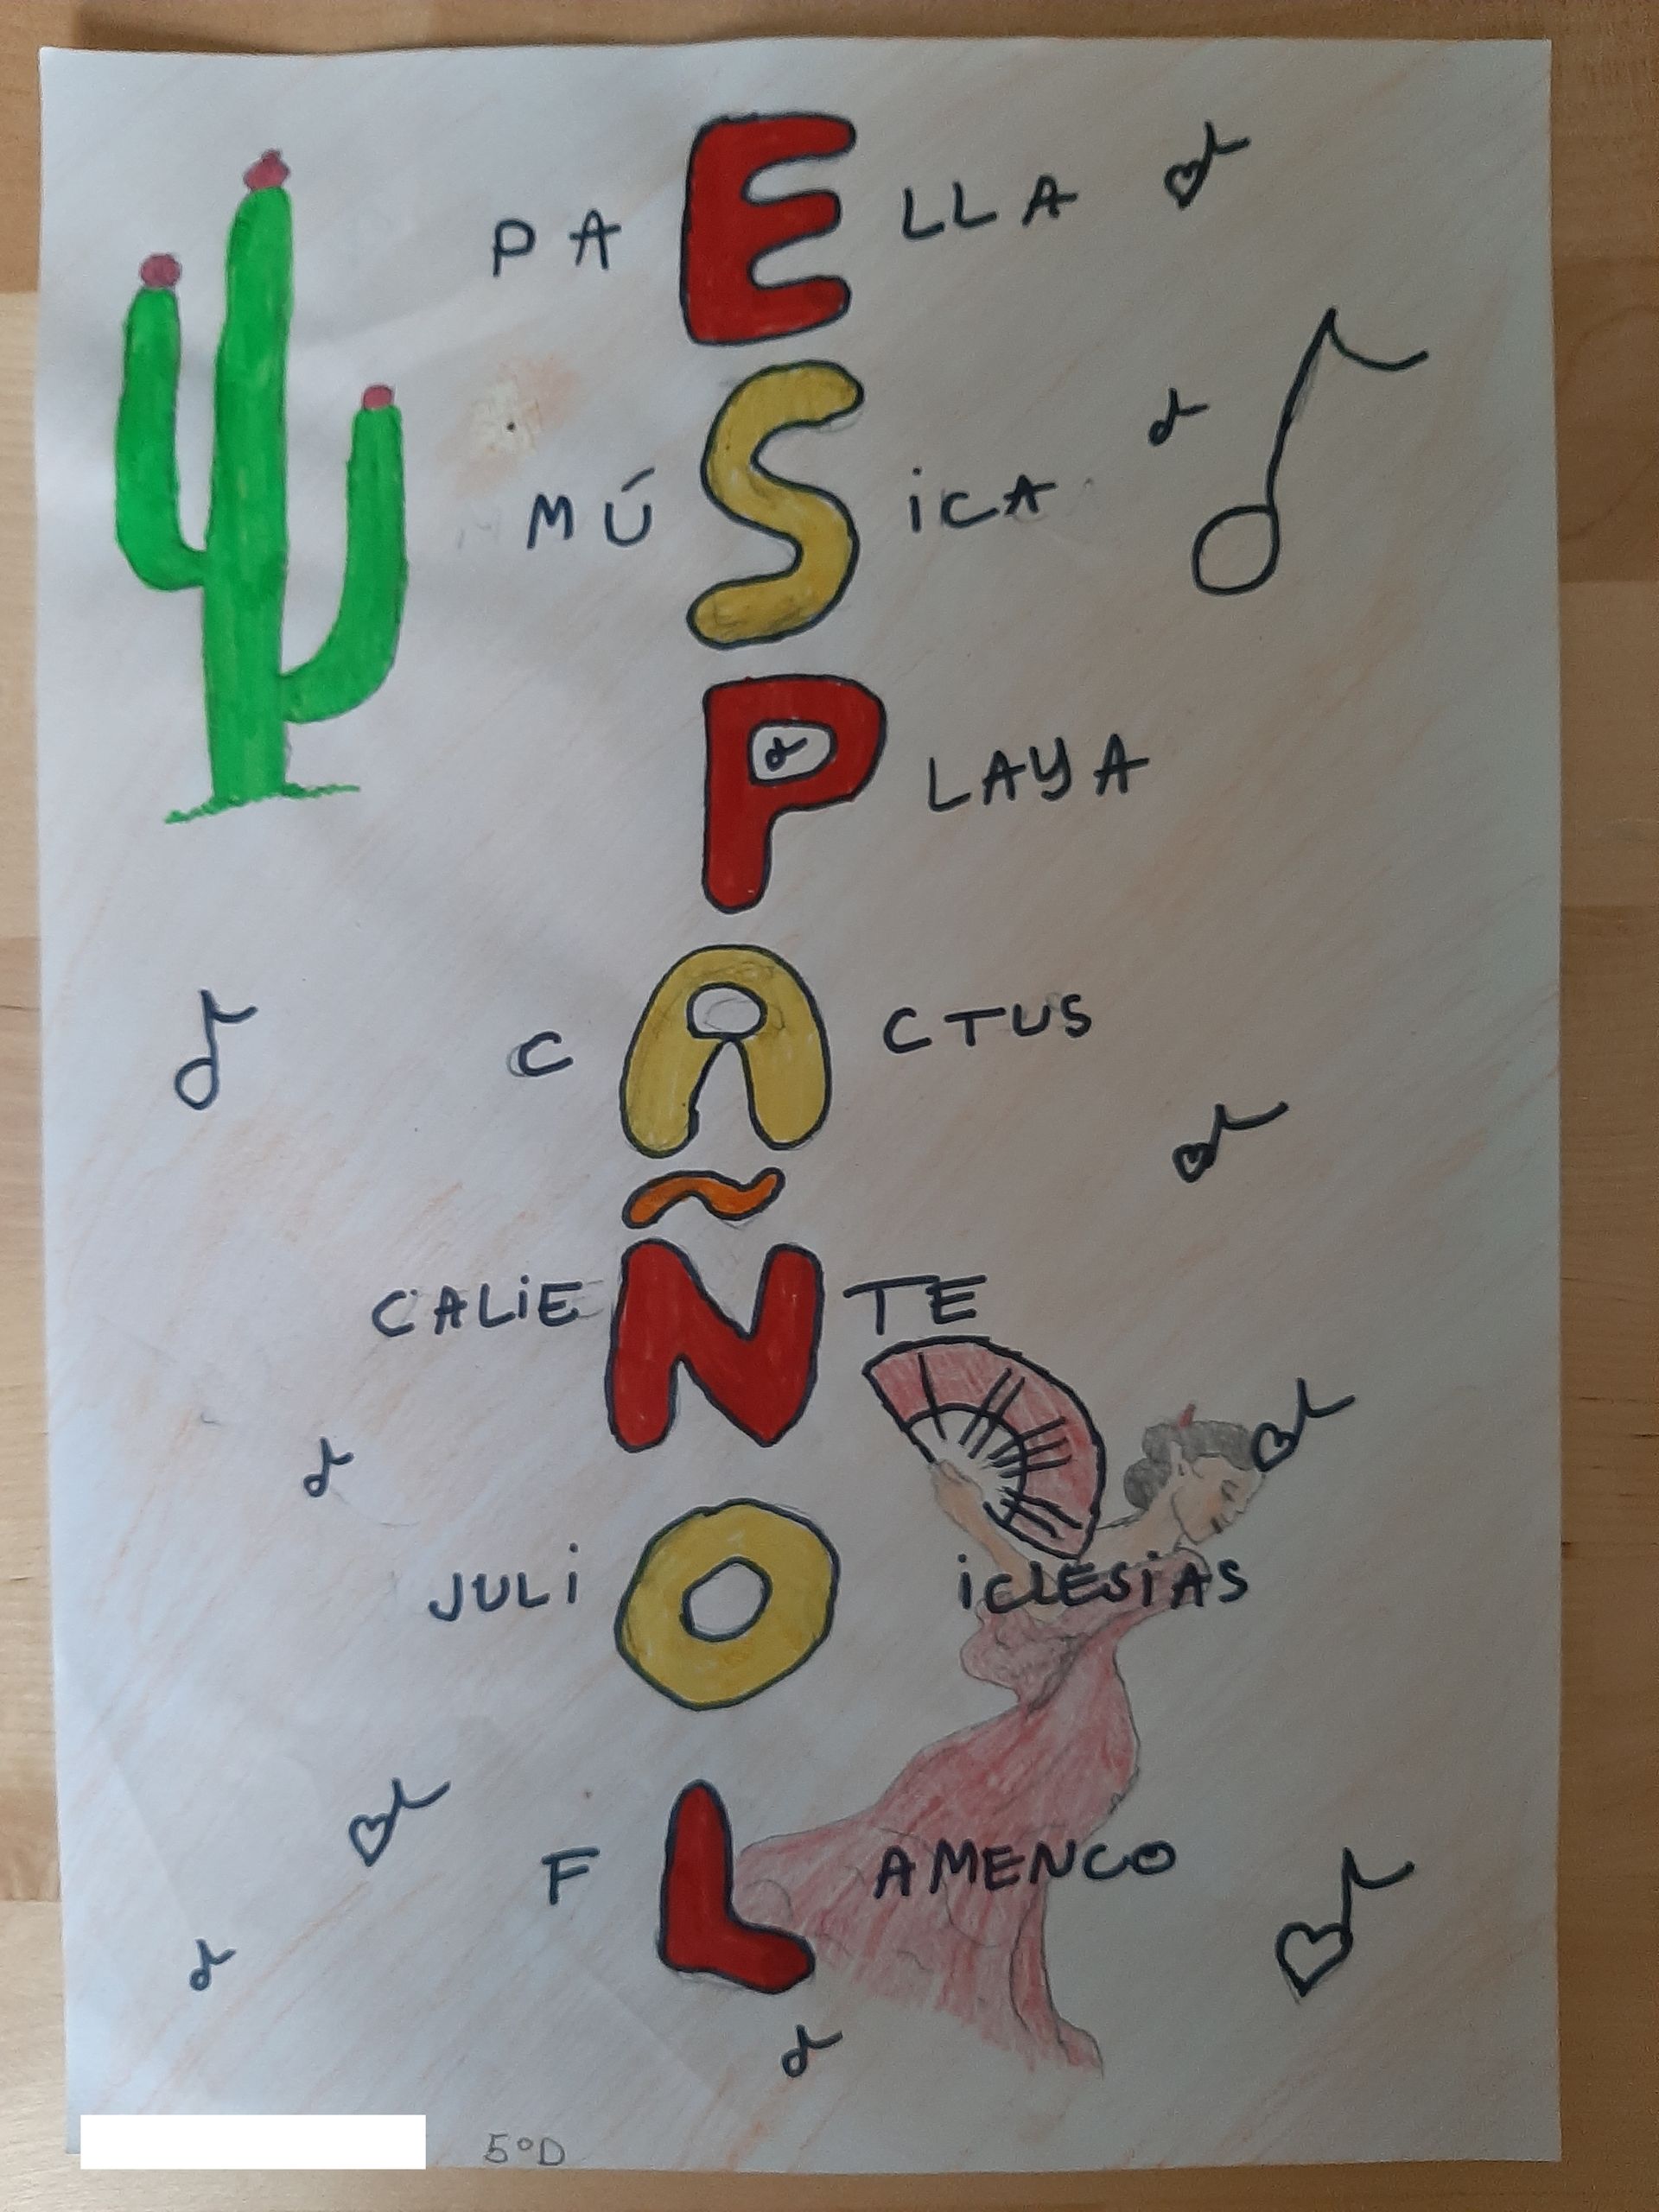 PAELLA
MÚSICA
PLAYA
CACTUS
CALIEÑTE
JULIO iCLESiAS
FLAMENCO
5ºD